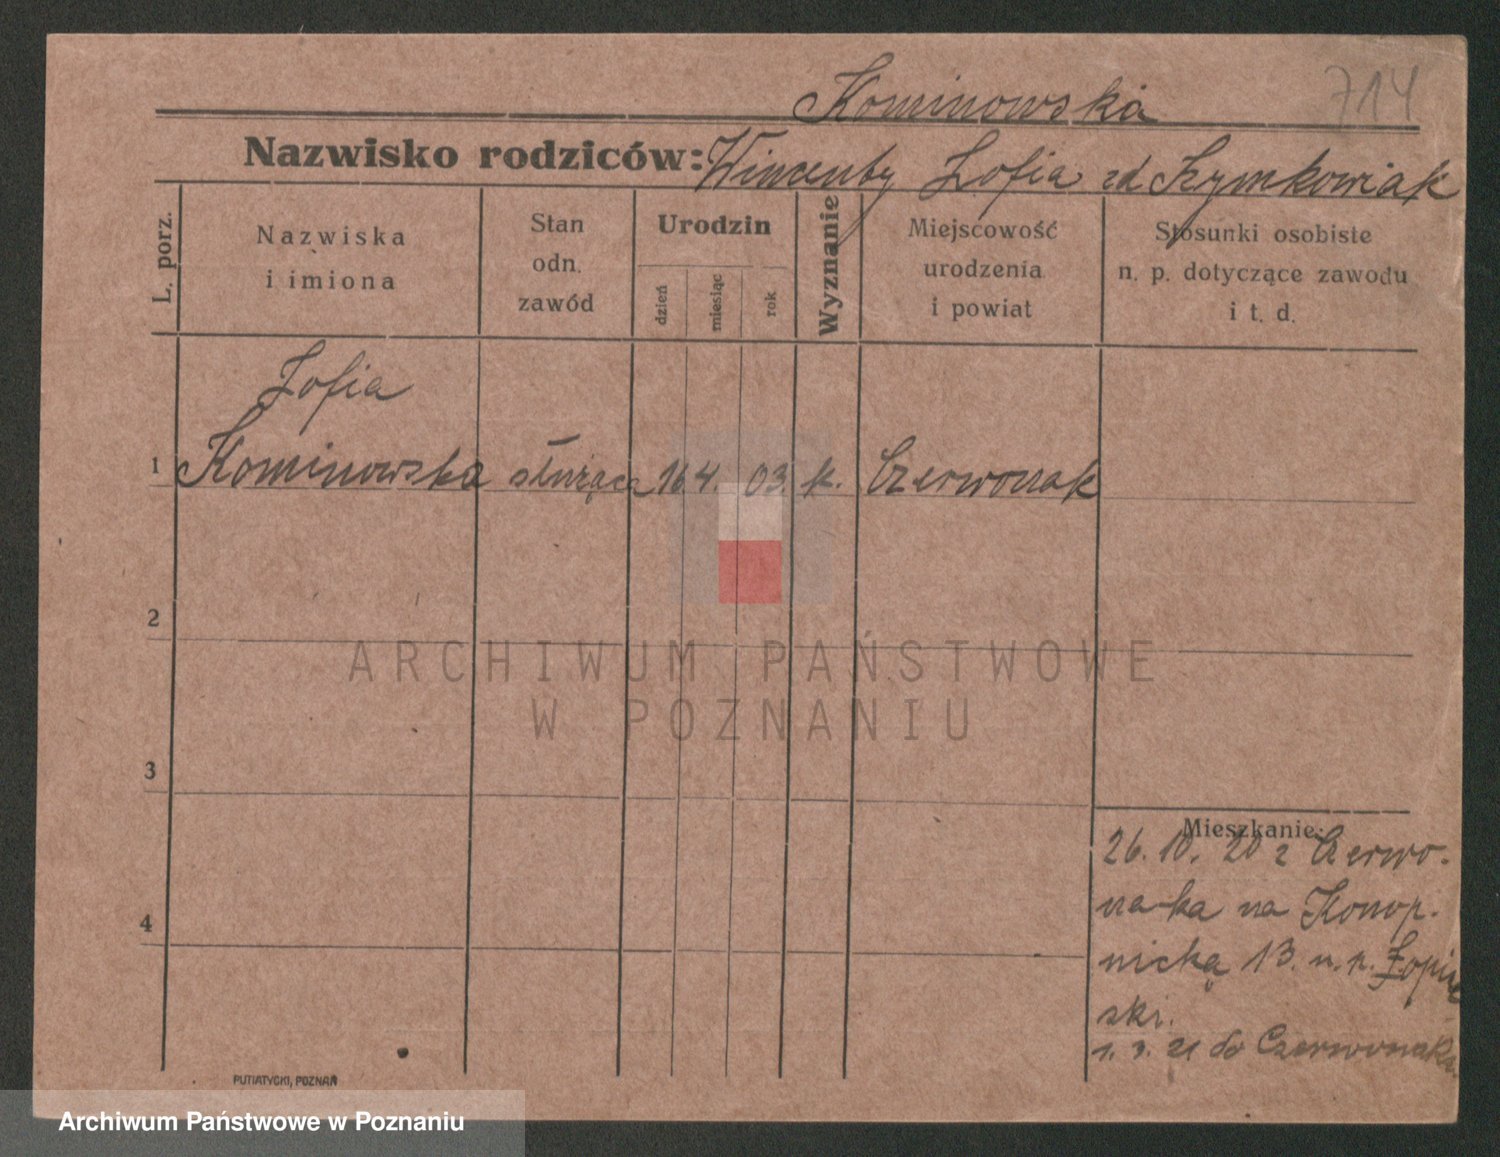 714
Kominowska
Nazwisko rodziców: Wincenty Zofia zd Szymkowiak
L. porz.
Nazwiska
i imiona
Stan
odn.
zawód
Urodzin
dzień
miesiąc
rok
Wyznanie
Miejscowość
urodzenia
i powiat
Stosunki osobiste
n. p. dotyczące zawodu
i t. d.
Zofia
1 Kominowska służąca 16 4. 03. k. Czerwonak
2
3
4
Mieszkanie:
26. 10. 20 z Czerwo-
naka na Konop-
nicką 13. u. p.
ski.
1. 3. 21 do Czerwonaka.
PUTIATYCKI, POZNAŃ
ARCHIWUM PAŃSTWOWE
W POZNANIU
Archiwum Państwowe w Poznaniu